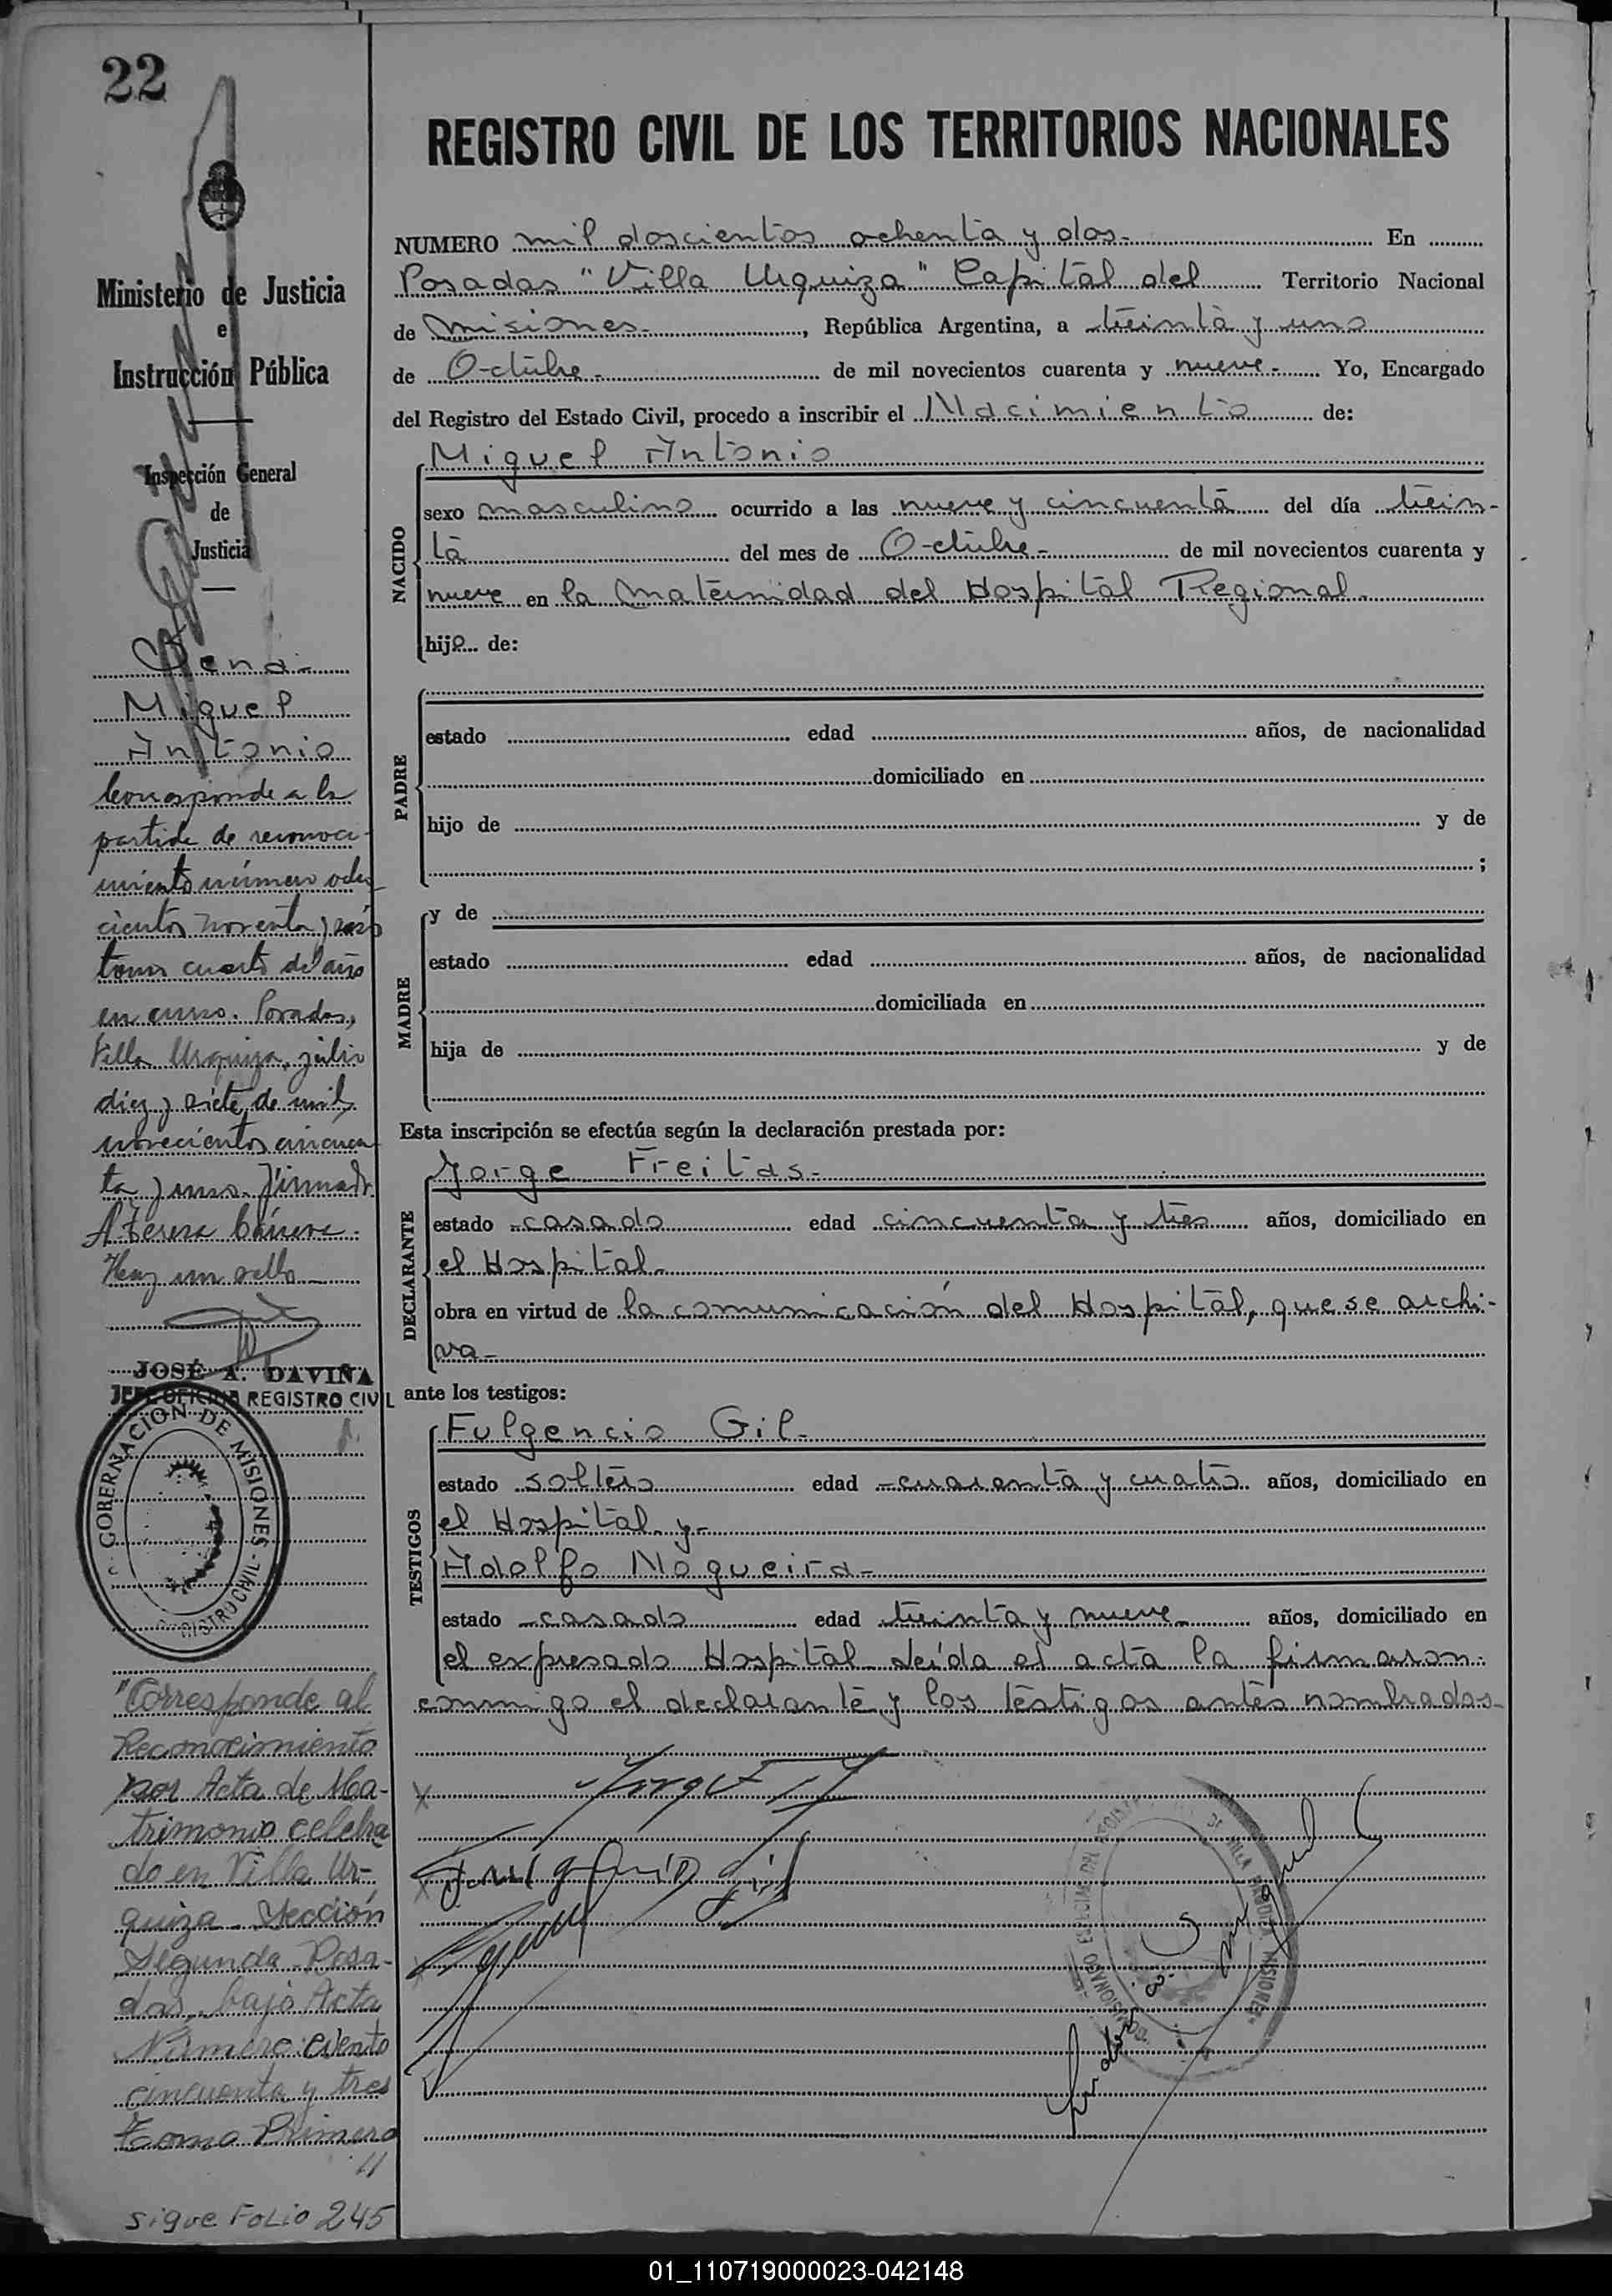 22
Ministerio de Justicia
e
Instrucción Pública
Inspección General
de
Justicia
Miguel
Antonio
Corresponde a la
partida de reconoci-
miento número ocho
cientos noventa y
tomo cuarto del año
en curso. Posadas,
Villa Urquiza, julio
diez y siete de mil
novecientos cincuen
ta y uno. Firmado
Hay un sello
JOSÉ A. DAVIÑA
JEFE OFICINA REGISTRO CIVIL
GOBERNACION DE MISIONES
REGISTRO CIVIL
"Corresponde al
Reconocimiento
por Acta de Ma-
trimonio celebra
do en Villa Ur-
quiza. Sección
Segunda. Posa-
das, bajo Acta
Número: ciento
cincuenta y tres
Tomo Primero
"
sigue FOLIO 245
REGISTRO CIVIL DE LOS TERRITORIOS NACIONALES
NUMERO mil doscientos ochenta y dos- En
Posadas "Villa Urquiza" Capital del Territorio Nacional
de Misiones-, República Argentina, a treinta y uno
de Octubre- de mil novecientos cuarenta y nueve- Yo, Encargado
del Registro del Estado Civil, procedo a inscribir el Nacimiento de:
Miguel Antonio
NACIDO
sexo masculino ocurrido a las nueve y cincuenta del día trein-
ta del mes de Octubre- de mil novecientos cuarenta y
nueve en la Maternidad del Hospital Regional.
hijo de:
PADRE
estado edad años, de nacionalidad
domiciliado en
hijo de y de
;
MADRE
y de
estado edad años, de nacionalidad
domiciliada en
hija de y de
Esta inscripción se efectúa según la declaración prestada por:
Jorge Freitas-
DECLARANTE
estado casado edad cincuenta y tres años, domiciliado en
el Hospital-
obra en virtud de la comunicación del Hospital, que se archi-
va-
ante los testigos:
Fulgencio Gil-
TESTIGOS
estado soltero edad cuarenta y cuatro años, domiciliado en
el Hospital y-
Adolfo Nogueira-
estado casado edad treinta y nueve- años, domiciliado en
el expresado Hospital. Leída el acta la firmaron
conmigo el declarante y los testigos antes nombrados-
01_110719000023-042148